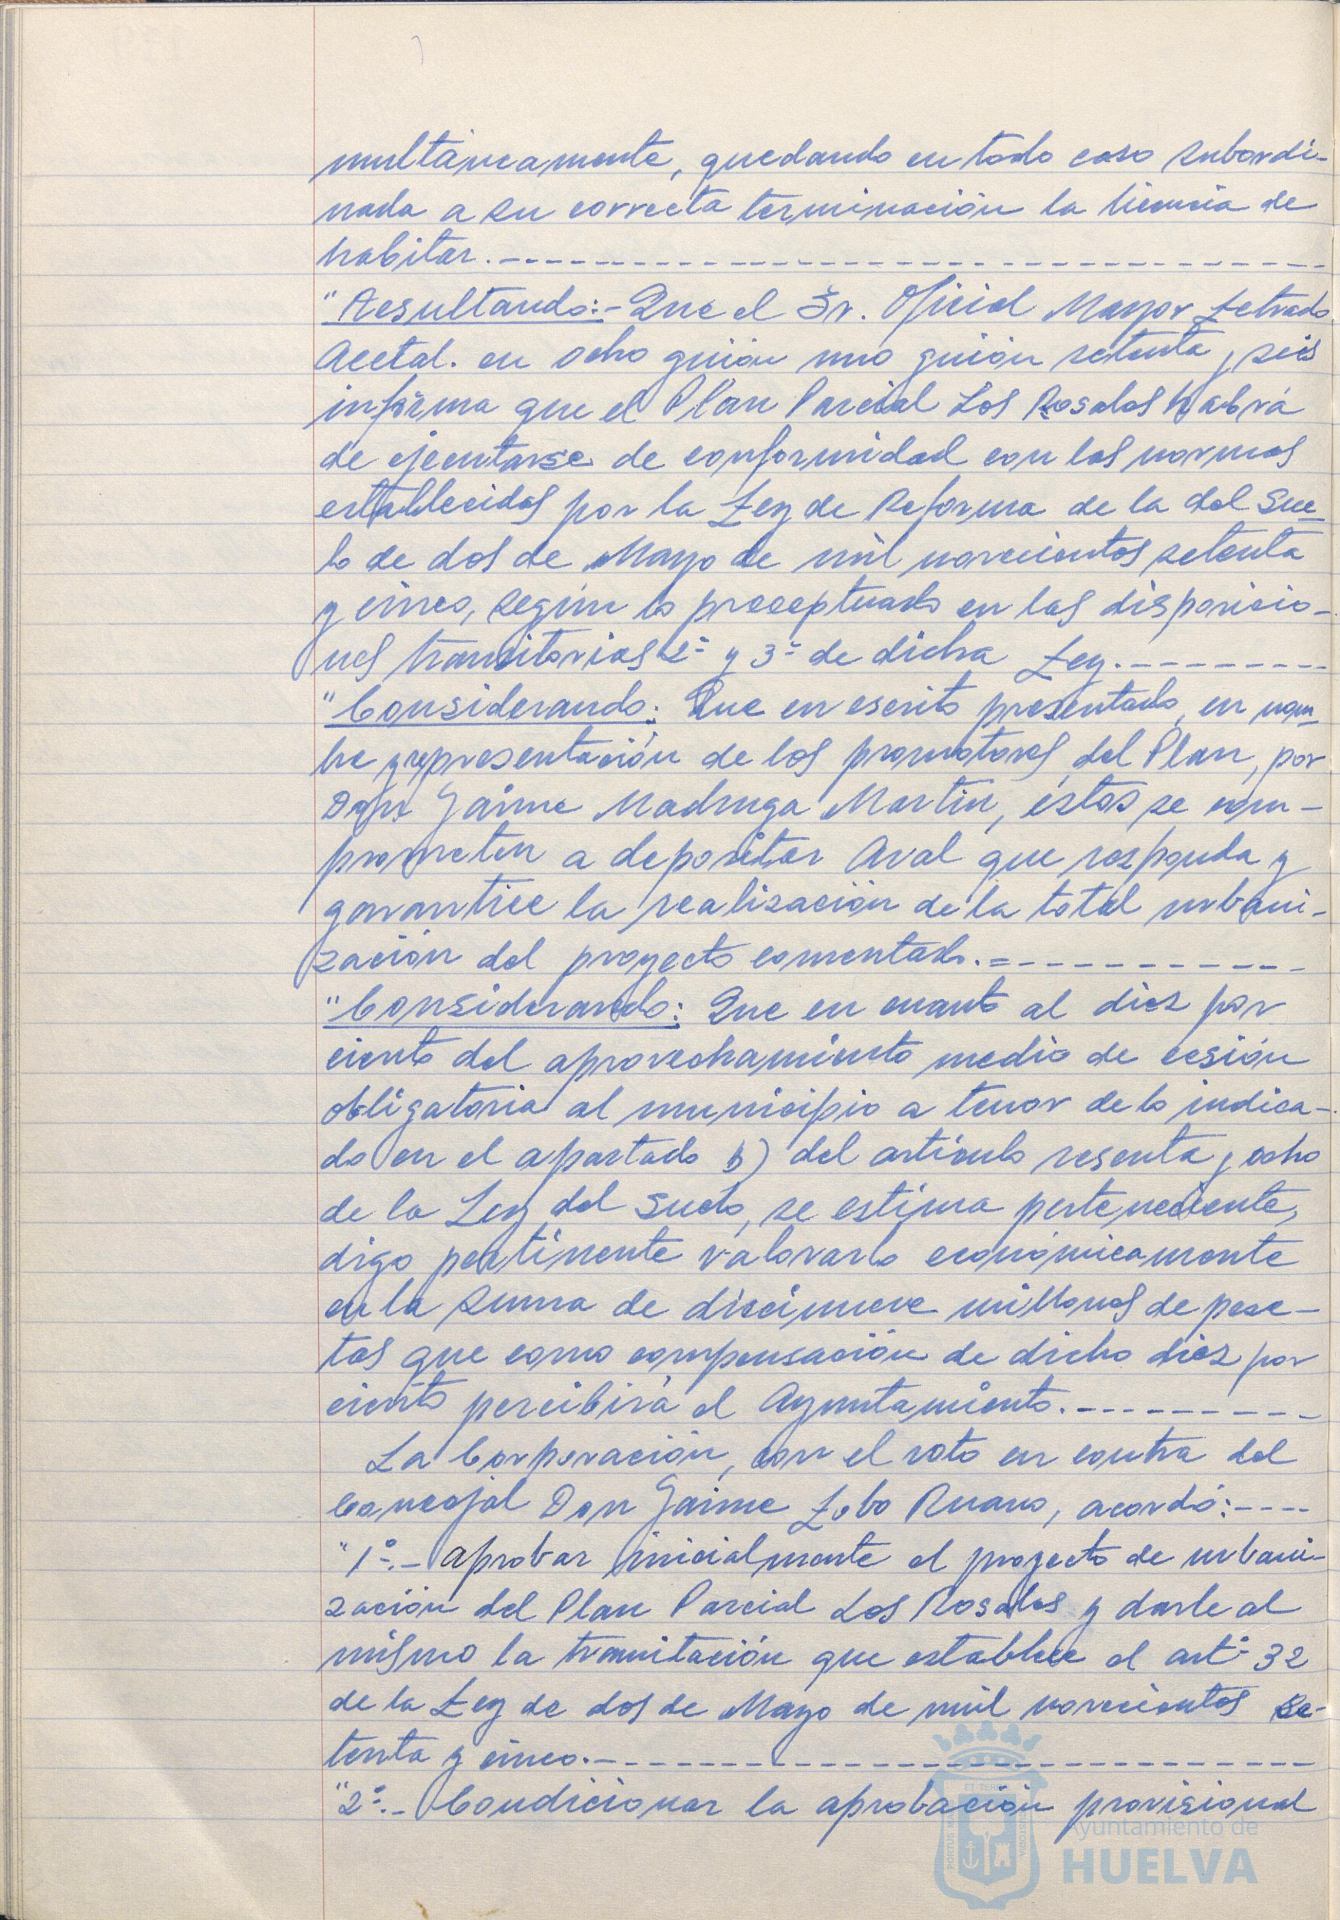 multáneamente, quedando en todo caso subordi-
nada a su correcta terminación la licencia de
habitar.-----------------------------------
"Resultando:- Que el Sr. Oficial Mayor Letrado
Acctal. en ocho guión uno guión setenta y seis
informa que el Plan Parcial Los Rosales habrá
de ejecutarse de conformidad con las normas
establecidas por la Ley de Reforma de la del Sue-
lo de dos de Mayo de mil novecientos setenta
y cinco, según lo preceptuado en las disposicio-
nes transitorias 2ª y 3ª de dicha Ley.---------
"Considerando: Que en escrito presentado, en nom
bre y representación de los promotores del Plan, por
Don Jaime Madruga Martín, éstos se com-
prometen a depositar Aval que responda y
garantice la realización de la total urbani-
zación del proyecto comentado.=-----------
"Considerando: Que en cuanto al diez por
ciento del aprovechamiento medio de cesión
obligatoria al municipio a tenor de lo indica-
do en el apartado b) del artículo sesenta y ocho
de la Ley del Suelo, se estima perteneciente,
digo pertinente valorarlo económicamente
en la suma de diecinueve millones de pese-
tas que como compensación de dicho diez por
ciento percibirá el Ayuntamiento.---------
La Corporación, con el voto en contra del
Concejal Don Jaime Lobo Ruano, acordó:----
"1º.- Aprobar inicialmente el proyecto de urbani-
zación del Plan Parcial Los Rosales y darle al
mismo la tramitación que establece el artº 32
de la Ley de dos de Mayo de mil novecientos se-
tenta y cinco.-----------------------------
"2º.- Condicionar la aprobación provisional
Ayuntamiento de
HUELVA